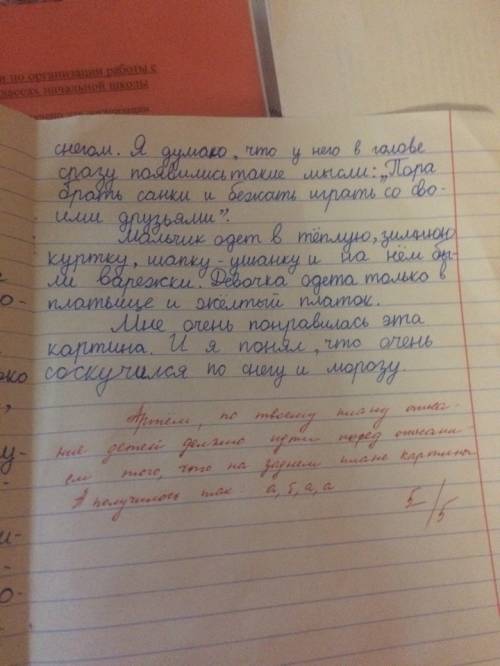 и по организации работы с
классах начальной школы
снегом. Я думаю, что у него в голове
сразу появились такие мысли: „Пора
брать санки и бежать играть со сво-
ими друзьями".
Мальчик одет в тёплую, зимнюю
куртку, шапку-ушанку и на нём бы-
ли варежки. Девочка одета только в
платьице и жёлтый платок.
Мне очень понравилась эта
картина. И я понял, что очень
соскучился по снегу и морозу.
Артём, по твоему плану описа-
ние детей должно идти перед описани-
ем того, что на заднем плане картины
А получилось так а, б, а, а
5/5